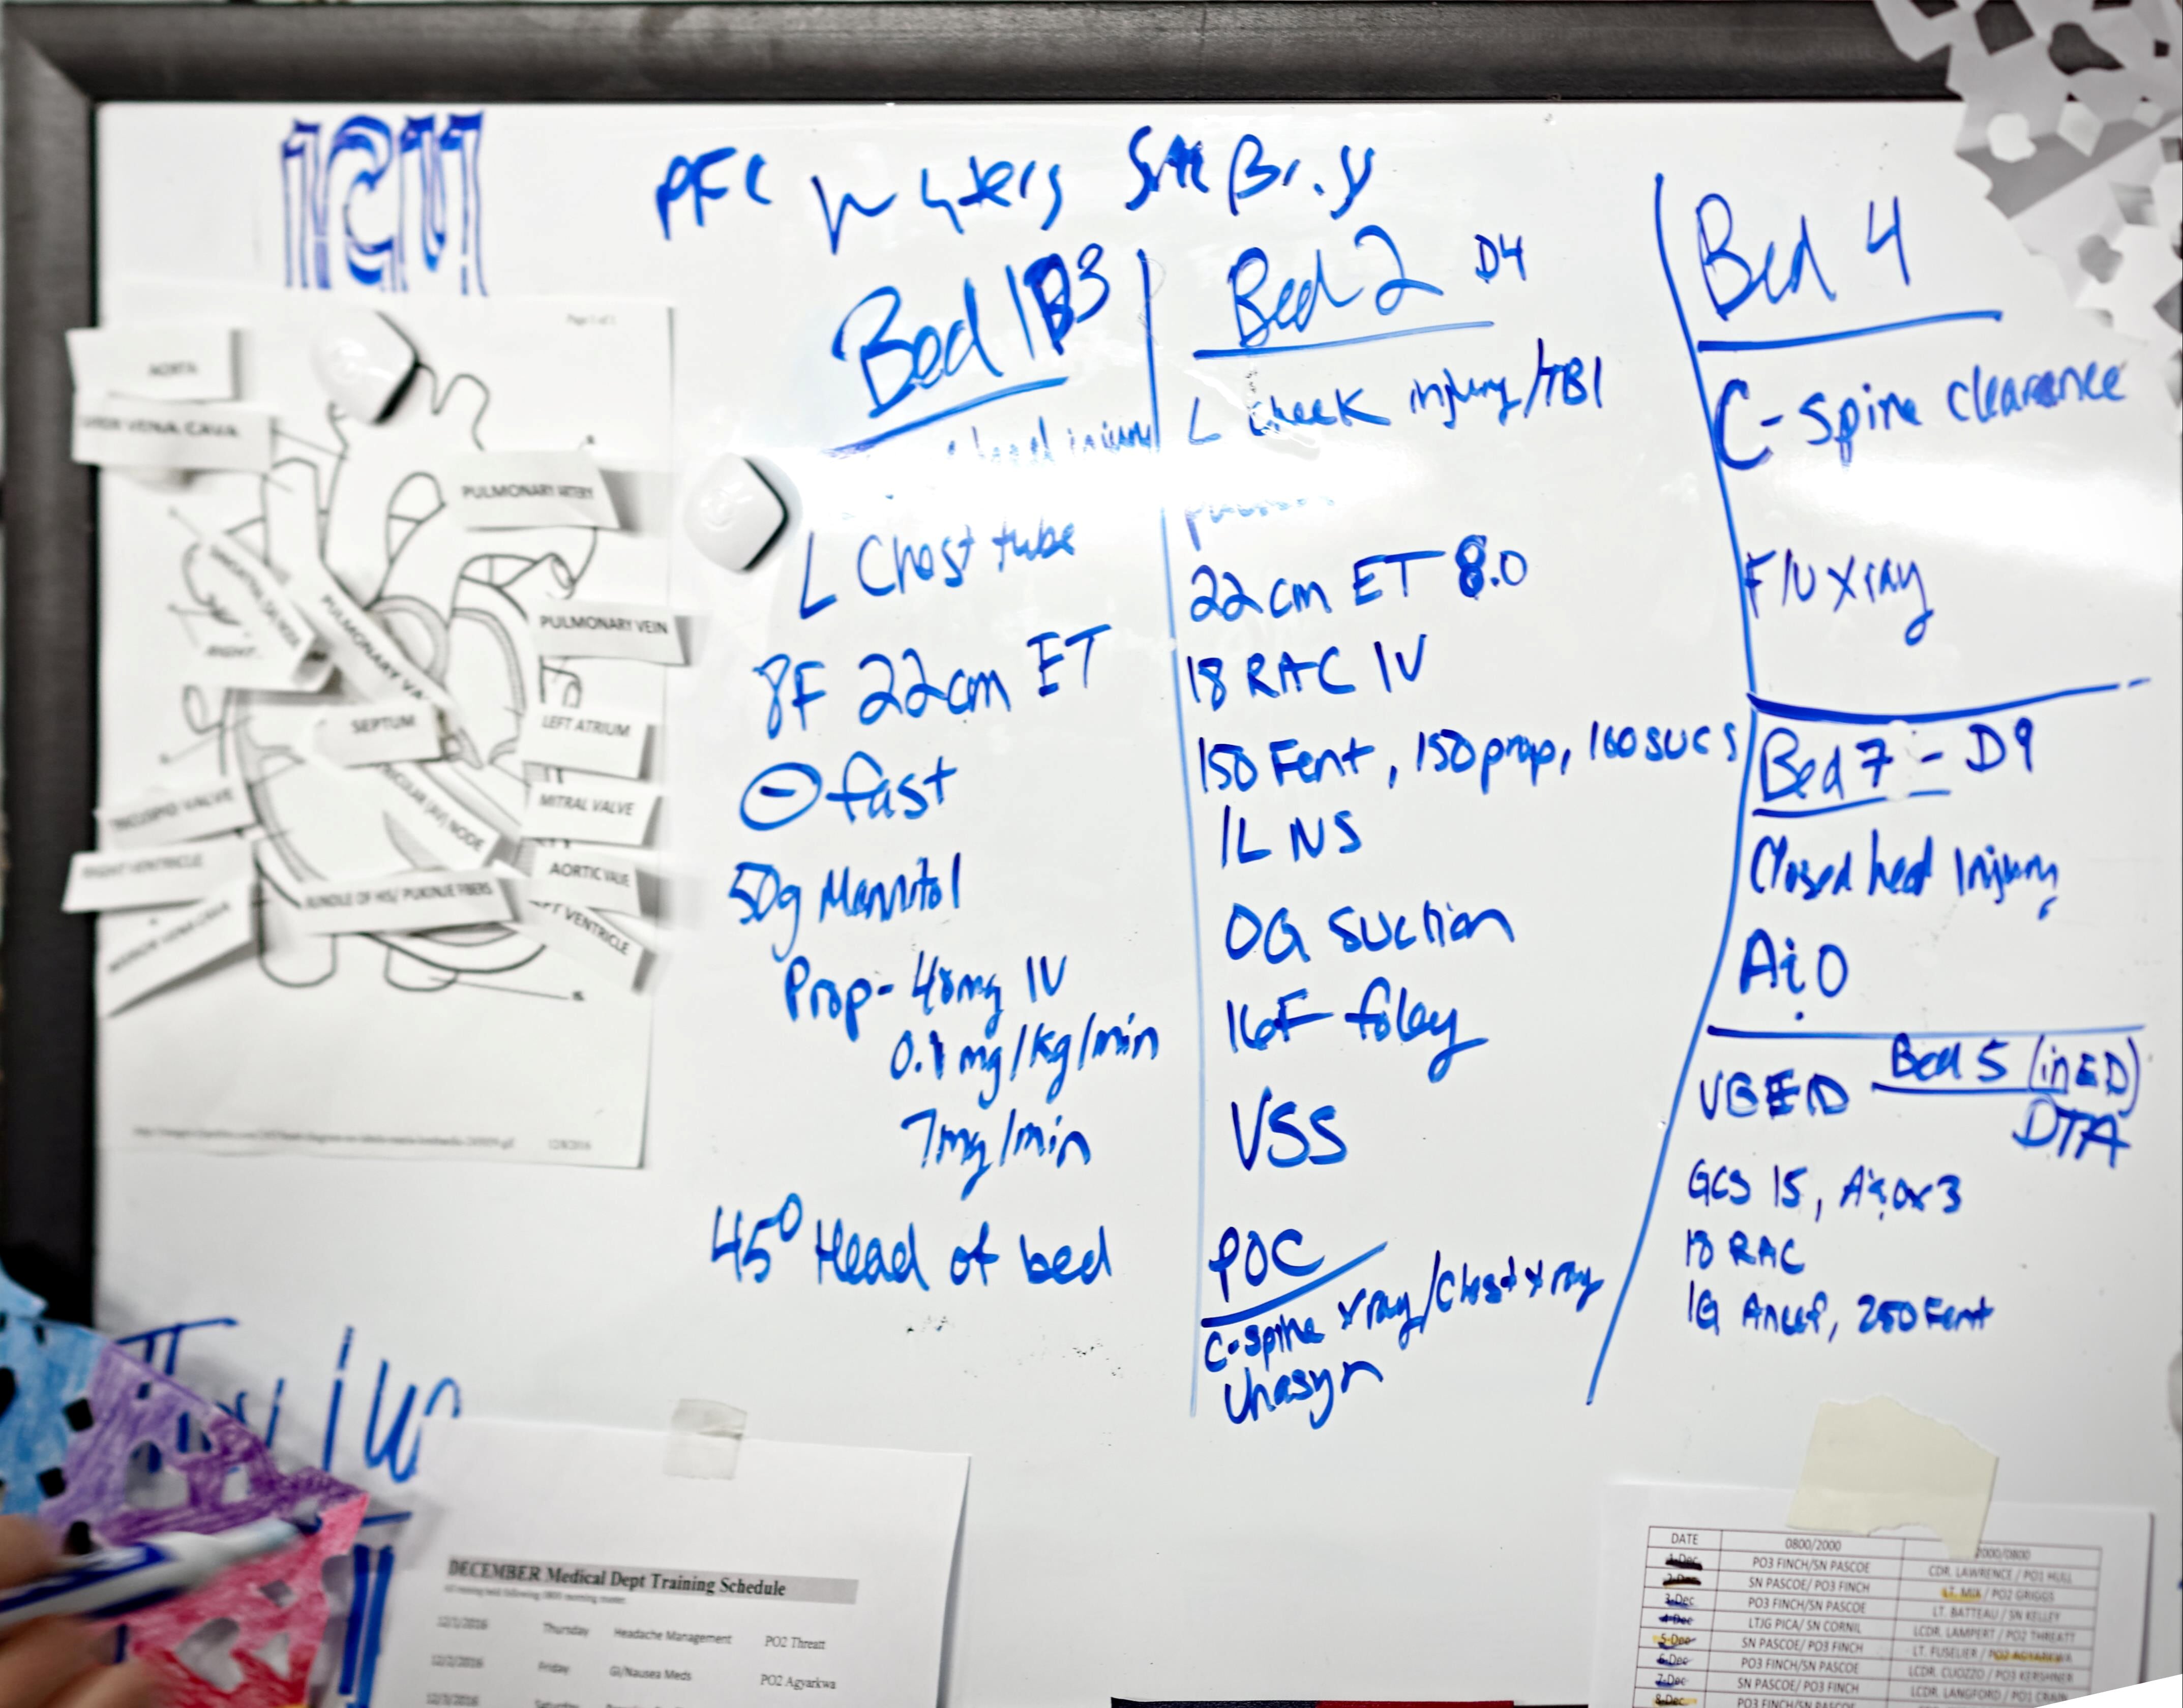 PFC
Bed 1 B3
head injury
L Chest tube
8F 22cm ET
⊖ fast
50g Mannitol
Prop- 40mg IV
0.1 mg/kg/min
7mg/min
45° Head of bed
Bed 2 D4
L cheek injury/TBI
22cm ET 8.0
18 RAC IV
150 Fent, 150 prop, 160 sucs
1L NS
OG suction
16F foley
VSS
POC
C-spine xray/Chest xray
Unasyn
Bed 4
C-spine clearance
F/U xray
Bed 7 - D9
Closed head Injury
A&O
Bed 5 (in ED)
DTA
GCS 15, A&Ox3
18 RAC
1G Ancef, 250 Fent
Page 1 of 1
AORTA
VENA CAVA
PULMONARY ARTERY
PULMONARY VEIN
SEPTUM
LEFT ATRIUM
TRICUSPID VALVE
(AV) NODE
MITRAL VALVE
RIGHT VENTRICLE
AORTIC VALVE
BUNDLE OF HIS/ PUKINJE FIBERS
VENTRICLE
12/8/2016
DECEMBER Medical Dept Training Schedule
12/1/2016 Thursday Headache Management PO2 Threatt
12/2/2016 Friday GI/Nausea Meds PO2 Agyarkwa
Saturday
DATE 0800/2000 2000/0800
1-Dec PO3 FINCH/SN PASCOE CDR. LAWRENCE / PO1 HULL
2-Dec SN PASCOE/ PO3 FINCH LT. MIX / PO2 GRIGGS
3-Dec PO3 FINCH/SN PASCOE LT. BATTEAU / SN KELLEY
4-Dec LTJG PICA/ SN CORNIL LCDR. LAMPERT / PO2 THREATT
5-Dec SN PASCOE/ PO3 FINCH LT. FUSELIER / PO2 AGYARKWA
6-Dec PO3 FINCH/SN PASCOE LCDR. CUOZZO / PO3 KERSHNER
7-Dec SN PASCOE/ PO3 FINCH LCDR. LANGFORD / PO1
8-Dec PO3 FINCH/SN PASCOE